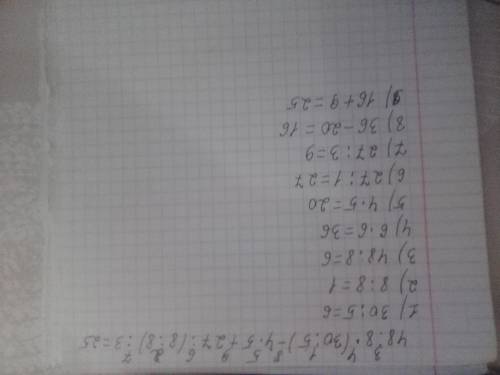 3 4 1 8 5 9 6 2 7
48:8·(30:5)-4·5+27:(8:8):3=25
1) 30:5=6
2) 8:8=1
3) 48:8=6
4) 6·6=36
5) 4·5=20
6) 27:1=27
7) 27:3=9
8) 36-20=16
9) 16+9=25